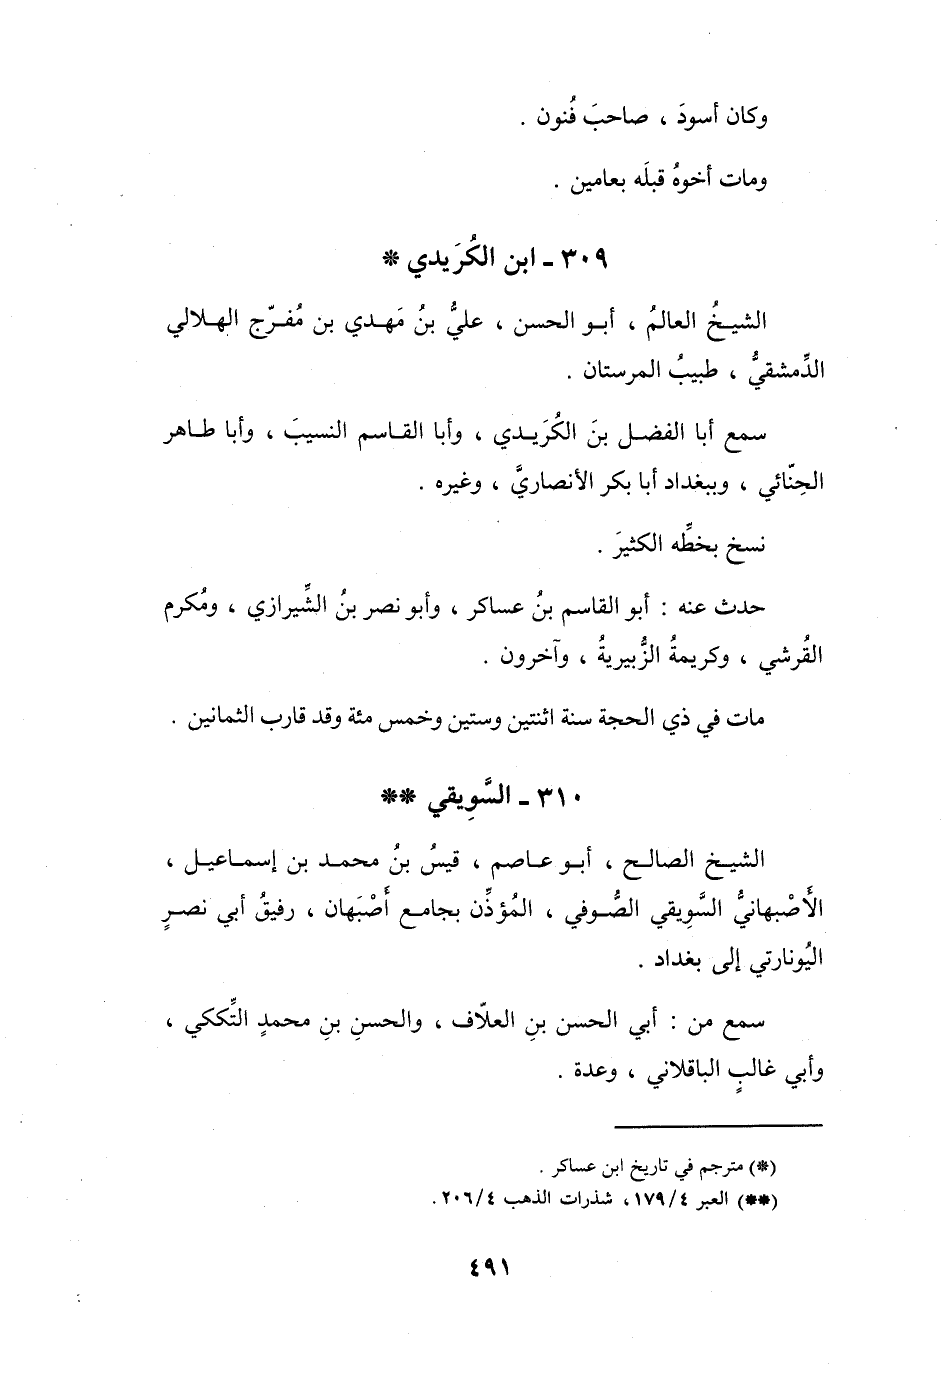 وكان أسودَ ، صاحبَ فُنون .
ومات أخوهُ قبلَه بعامين .
٣٠٩ - ابن الكُرَيدي *
الشيخُ العالمُ ، أبو الحسن ، عليُّ بنُ مَهدي بن مُفرّج الهلالي
الدِّمشقيُّ ، طبيبُ المرستان .
سمع أبا الفضل بنَ الكُرَيدي ، وأبا القاسم النسيبَ ، وأبا طاهر
الحِنّائي ، وببغداد أبا بكر الأنصاريَّ ، وغيره .
نسخ بخطِّه الكثيرَ .
حدث عنه : أبو القاسم بنُ عساكر ، وأبو نصر بنُ الشِّيرازي ، ومُكرم
القُرشي ، وكريمةُ الزُّبيريةُ ، وآخرون .
مات في ذي الحجة سنة اثنتين وستين وخمس مئة وقد قارب الثمانين .
٣١٠ - السَّوِيقي **
الشيخ الصالح ، أبو عاصم ، قيسُ بنُ محمد بن إسماعيل ،
الأَصْبهانيُّ السَّوِيقي الصُّوفي ، المُؤذِّن بجامع أَصْبَهان ، رفيقُ أبي نصرٍ
اليُونارتي إلى بغداد .
سمع من : أبي الحسن بنِ العلاّف ، والحسنِ بنِ محمدٍ التِّككي ،
وأبي غالبٍ الباقلاني ، وعدة .
(*) مترجم في تاريخ ابن عساكر .
(**) العبر ٤ /١٧٩، شذرات الذهب ٤ /٢٠٦ .
٤٩١